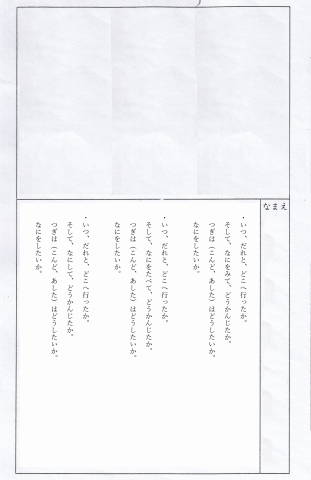 なまえ
・いつ、だれと、どこへ行ったか。
そして、なにをみて、どうかんじたか。
つぎは（こんど、あした）はどうしたいか。
なにをしたいか。
・いつ、だれと、どこへ行ったか。
そして、なにをたべて、どうかんじたか。
つぎは（こんど、あした）はどうしたいか。
なにをしたいか。
・いつ、だれと、どこへ行ったか。
そして、なにして、どうかんじたか。
つぎは（こんど、あした）はどうしたいか。
なにをしたいか。